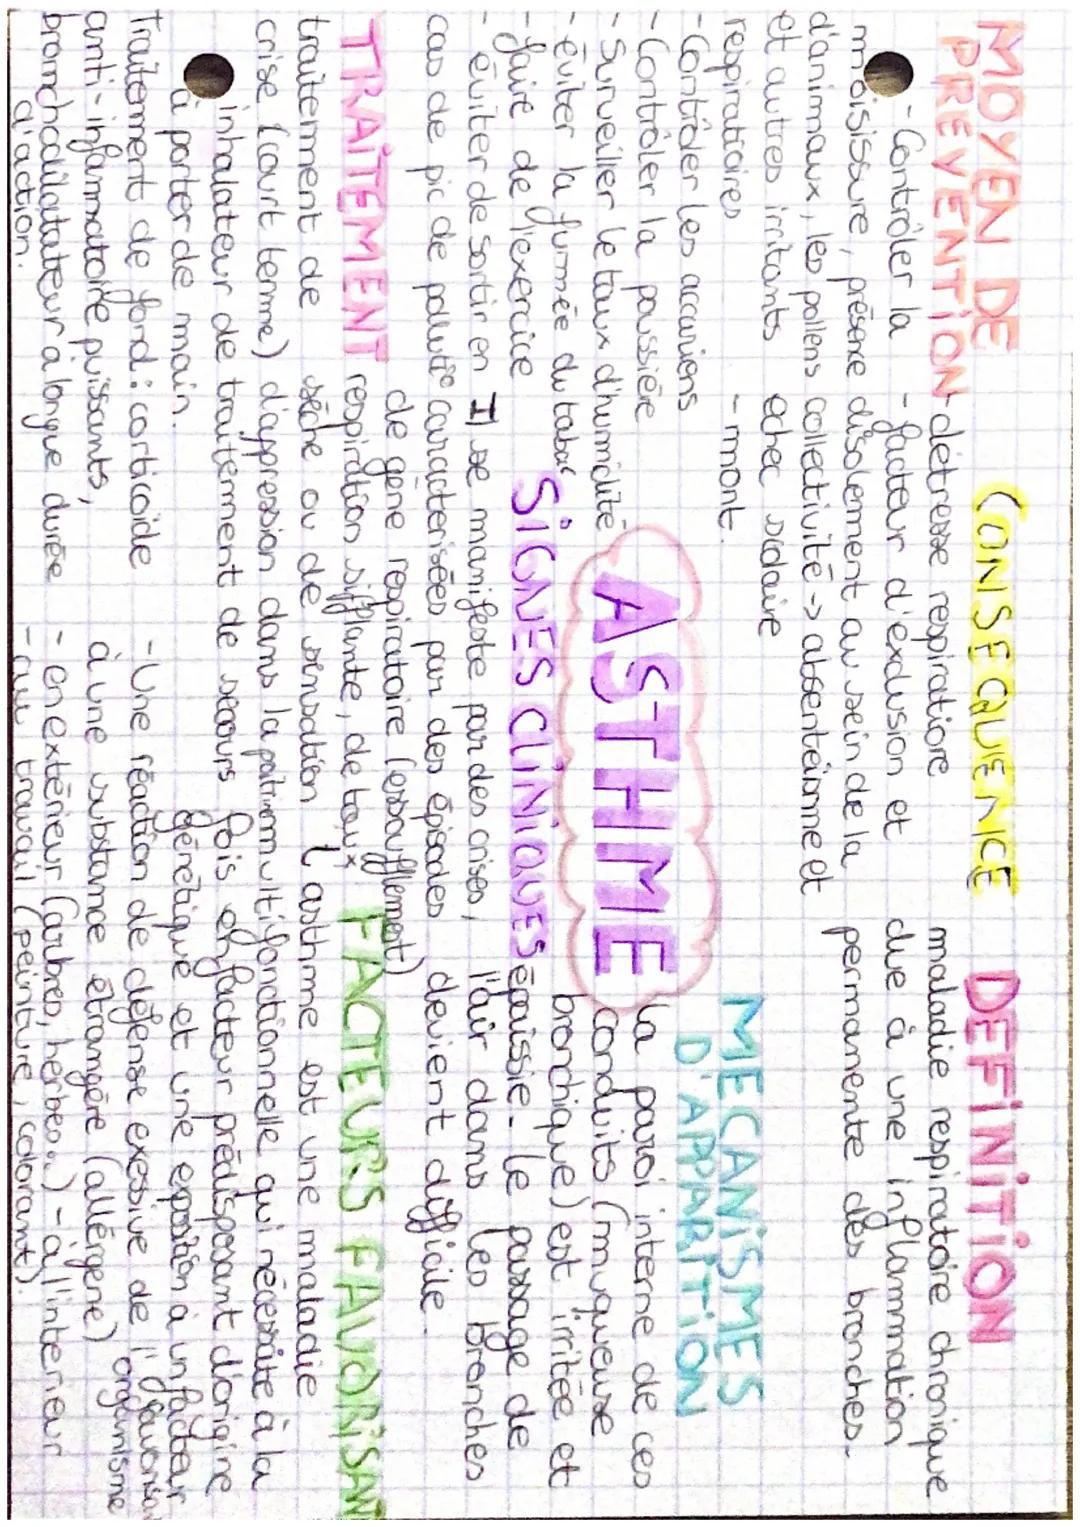 MOYEN DE
PREVENTION
- Contrôler la
moisissure, présene
d'animaux, les pollens
et autres irritants
respiratoires
- Contrôler les accariens
- Contrôler la poussière
- Surveiller le taux d'humidité
- éviter la fumée du tabac
- faire de l'exercice
- éviter de sortir en
cas de pic de pollutio
CONSEQUENCE
- détresse respiratiore
- facteur d'exclusion et
d'isolement au sein de la
collectivité -> absenteinme et
echec scolaire
- mont.
DEFINITION
maladie respiratoire chronique
due à une inflammation
permanente des bronches.
ASTHME
MECANISMES
D'APPARTION
la paroi interne de ces
conduits (muqueuse
bronchique) est irritée et
épaissie. le passage de
l'air dans les bronches
devient difficile.
SIGNES CLINIQUES
I) se manifeste par des crises,
caractérisées par des épisodes
de gêne respiratoire (essoufflement)
respiration sifflante, de toux
sèche ou de sensation
d'appression dans la poitrine
TRAITEMENT
traitement de
crise (court terme)
inhalateur de traitement de secours
à porter de main.
Traitement de fond : corticoide
anti-infammatoire puissants,
bronchodilatateur à longue durée
d'action.
FACTEURS FAVORISANT
L'asthme est une maladie
multifonctionnelle qui nécessite à la
fois un facteur prédisposant d'origine
génétique et une exposition à un facteur
favorisa
- Une réaction de défense exessive de l'organisme
à une substance étrangère (allérgene)
- en extérieur (arbres, herbes..) - à l'intérieur
- au travail (peinture, colorant).